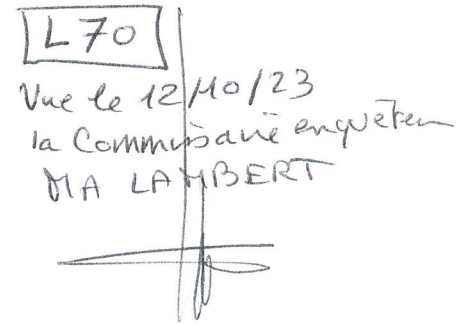 L 70
Vue le 12/10/23
la Commissaire enquêteur
MA LAMBERT